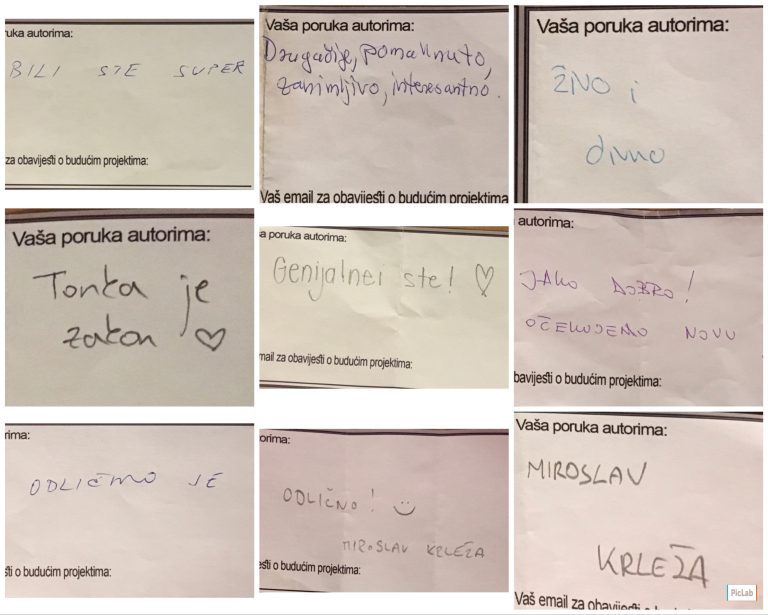 uka autorima:
BILI STE SUPER
za obavijesti o budućim projektima:
Vaša poruka autorima:
Drugačije, pomaknuto,
zanimljivo, interesantno.
Vaš email za obavijesti o budućim projektima
Vaša poruka autorima:
ŽNO i
divno
Vaša poruka autorima:
Tonka je
zakon ♡
a poruka autorima:
Genijalnei ste! ♡
mail za obavijesti o budućim projektima:
autorima:
JAKO DOBRO!
OČEKUJEMO NOVU
bavijesti o budućim projektima:
rima:
ODLIČMO JE
sti o budućim projektima:
orima:
ODLIČNO! :)
MIROSLAV KRLEŽA
esti o budućim projektima:
Vaša poruka autorima:
MIROSLAV
KRLEŽA
Vaš email za obavijesti o budućim projektima:
PicLab